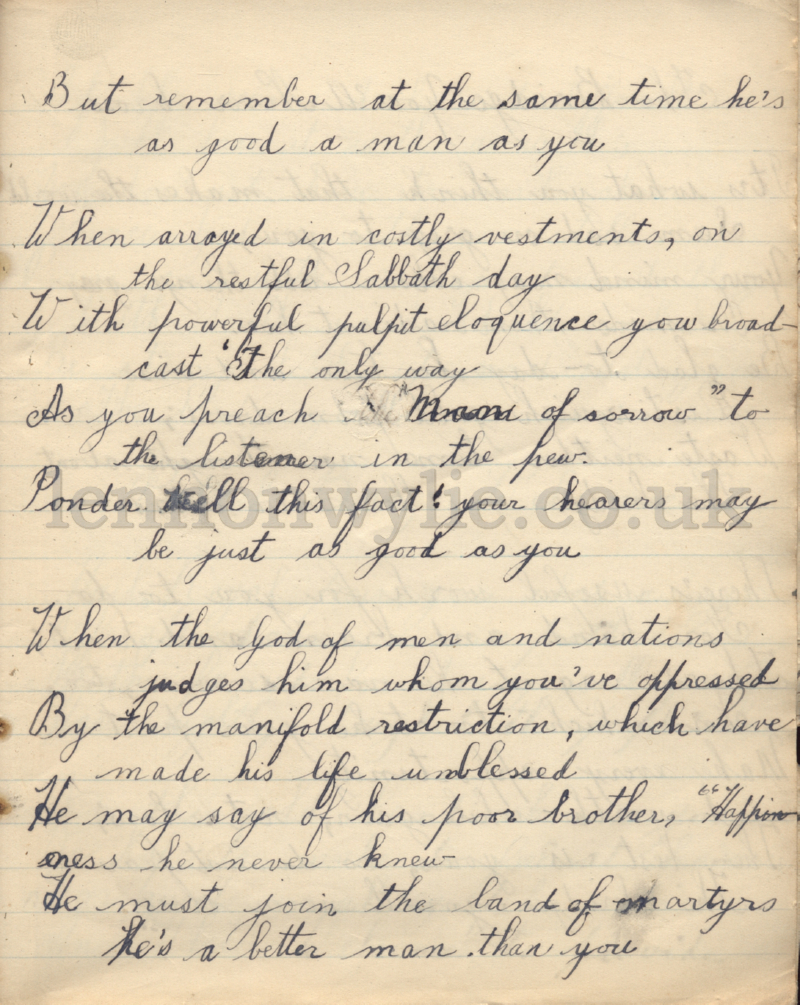 But remember at the same time he's
as good a man as you
When arrayed in costly vestments, on
the restful Sabbath day
With powerful pulpit eloquence you broad-
cast 'The only way
As you preach the "Man of sorrow" to
the listener in the pew.
Ponder well this fact! your hearers may
be just as good as you
lennonwylie.co.uk
When the God of men and nations
judges him whom you've oppressed
By the manifold restriction, which have
made his life unblessed
He may say of his poor brother, "Happin
eness he never knew
He must join the band of martyrs
he's a better man than you